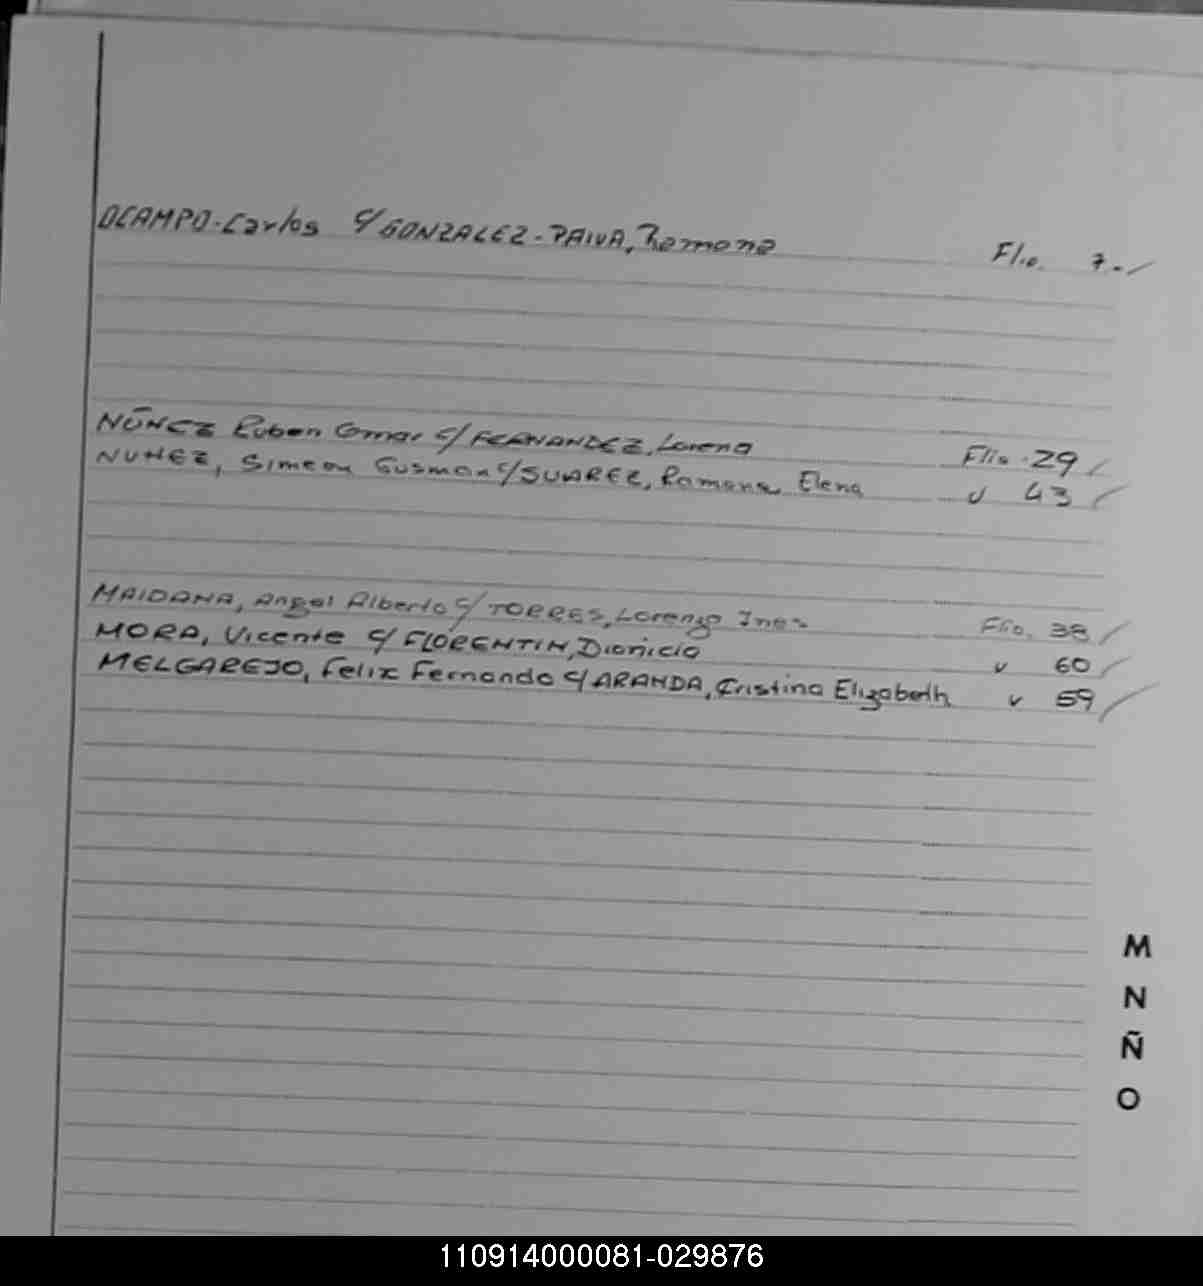 OCAMPO-Carlos c/ GONZALEZ-PAIVA, Ramona Flio. 7.-
NÚÑEZ Ruben Omar c/ FERNANDEZ, Lorena Flio. 29
NUÑEZ, Simeon Gusman c/ SUAREZ, Ramona Elena " 43
MAIDANA, Angel Alberto c/ TORRES, Lorenza Ines Flio. 38
MORA, Vicente c/ FLORENTIN, Dionicia " 60
MELGAREJO, Felix Fernando c/ ARANDA, Cristina Elizabeth " 59
M
N
Ñ
O
110914000081-029876